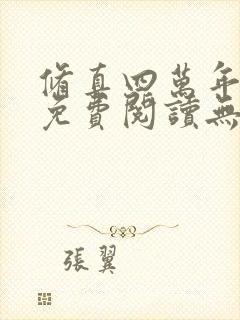 脩真四萬年
免費閱讀無
張翼